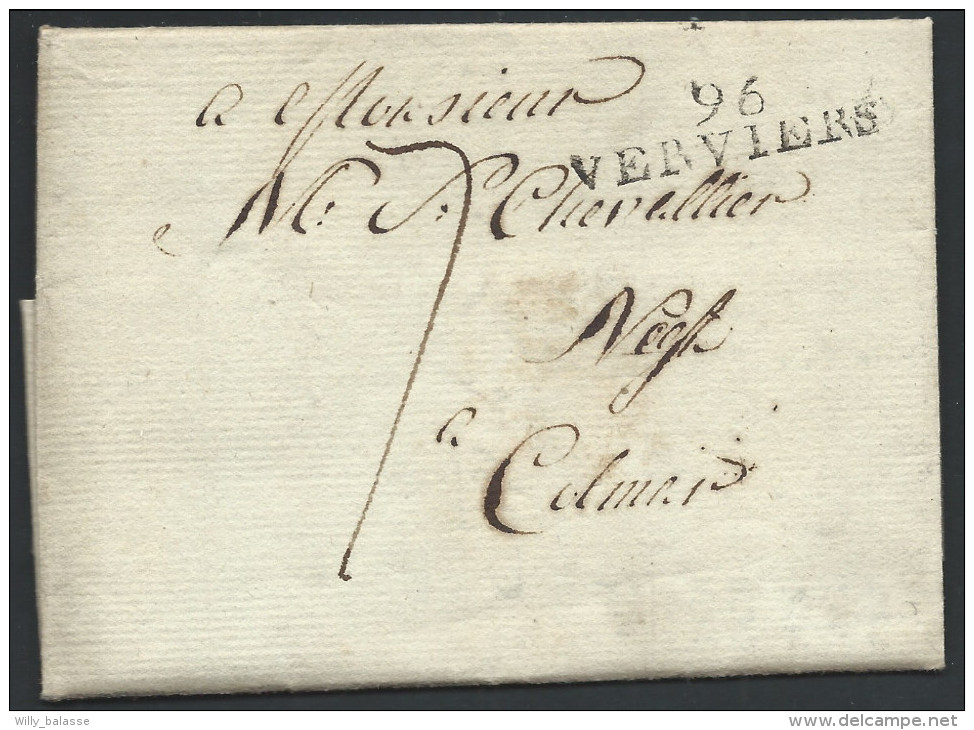 a Monsieur
96
VERVIERS
M: Chevallier
7
Negt
a
Colmar
Willy_balasse
delcampe.net